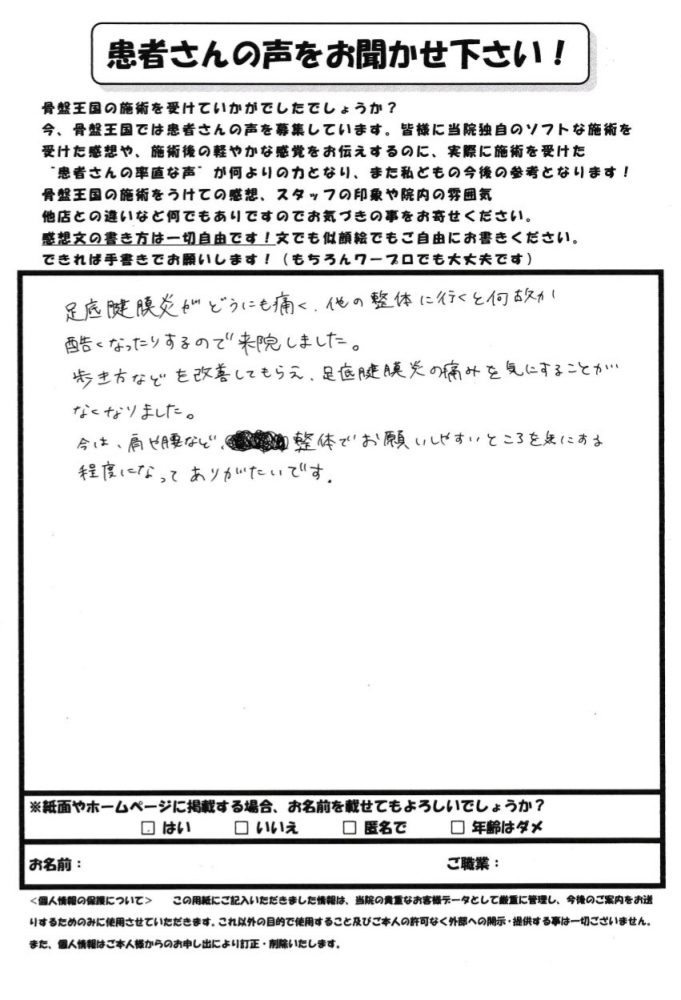 患者さんの声をお聞かせ下さい！
骨盤王国の施術を受けていかがでしたでしょうか？
今、骨盤王国では患者さんの声を募集しています。皆様に当院独自のソフトな施術を
受けた感想や、施術後の軽やかな感覚をお伝えするのに、実際に施術を受けた
“患者さんの率直な声”が何よりの力となり、また私どもの今後の参考となります！
骨盤王国の施術をうけての感想、スタッフの印象や院内の雰囲気
他店との違いなど何でもありですのでお気づきの事をお寄せください。
感想文の書き方は一切自由です！文でも似顔絵でもご自由にお書きください。
できれば手書きでお願いします！（もちろんワープロでも大丈夫です）
足底腱膜炎がどうにも痛く、他の整体に行くと何故か
酷くなったりするので来院しました。
歩き方などを改善してもらえ、足底腱膜炎の痛みを気にすることが
なくなりました。
今は、肩や腰など、整体でお願いしやすいところを気にする
程度になってありがたいです。
※紙面やホームページに掲載する場合、お名前を載せてもよろしいでしょうか？
□ はい □ いいえ □ 匿名で □ 年齢はダメ
お名前： ご職業：
＜個人情報の保護について＞ この用紙にご記入いただきました情報は、当院の貴重なお客様データとして厳重に管理し、今後のご案内をお送
りするためのみに使用させていただきます。これ以外の目的で使用すること及びご本人の許可なく外部への開示・提供する事は一切ございません。
また、個人情報はご本人様からのお申し出により訂正・削除いたします。